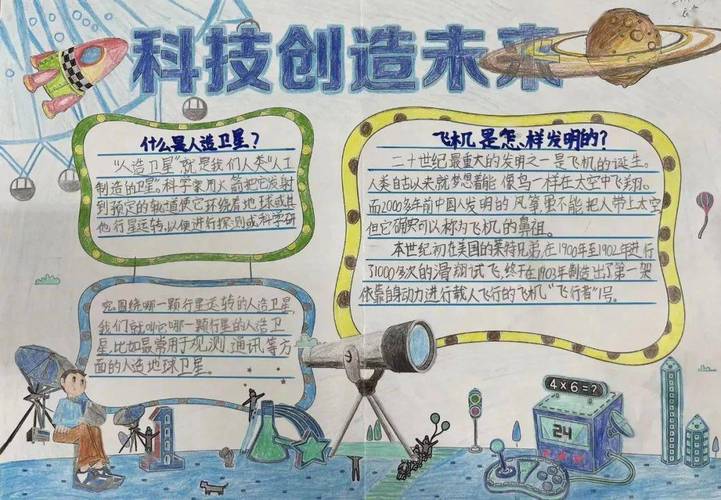 科技创造未来
什么是人造卫星？
"人造卫星"就是我们人类"人工
制造的卫星"。科学家用火箭把它发射
到预定的轨道，使它环绕着地球或其
他行星运转，以便进行探测或科学研
究。围绕哪一颗行星运转的人造卫星，
我们就叫它哪一颗行星的人造卫
星，比如最常用于观测、通讯等方
面的人造地球卫星。
飞机是怎样发明的？
二十世纪最重大的发明之一是飞机的诞生。
人类自古以来就梦想着能像鸟一样在太空中飞翔。
而2000多年前中国人发明的风筝，虽不能把人带上太空，
但它确实可以称为飞机的鼻祖。
本世纪初在美国的莱特兄弟，在1900年至1902年进行
了1000多次的滑翔试飞，终于在1903年制造出了第一架
依靠自身动力进行载人飞行的飞机"飞行者"1号。
4×6=?
24